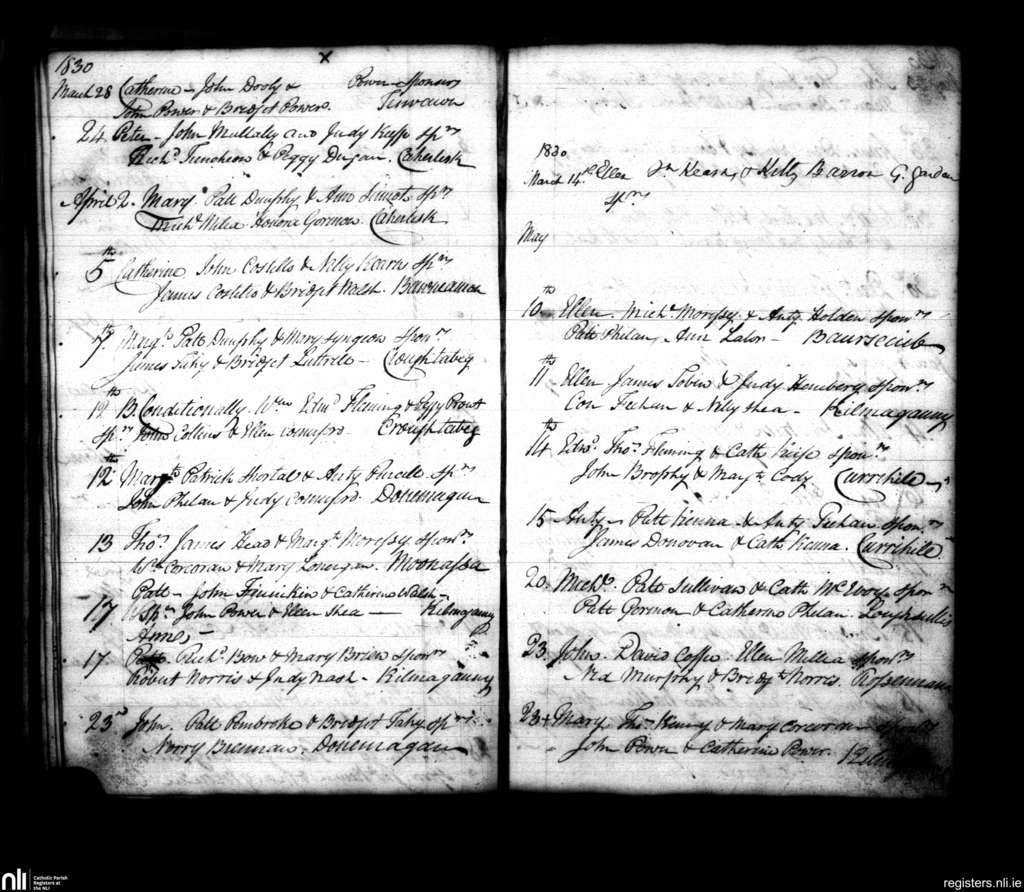 1830
March 28 Catherine - John Dooly & Power Sponsors
John Power & Bridget Power.
24 Peter - John Mullally and Judy Keffe spn.s
Rich.d & Peggy Dugan. Caherlesk
April 2. Mary. Patt Dunphy & Ann Sinnot spn.s
Mich.l Milea Honora Gorman. Caherlesk
5th Catherine John Costello & Nelly Kearns spn.s
James Costello & Bridget Walsh.
7th Marg.t Patt Dunphy & Mary spon.s
James Fahy & Bridget Luttrell - Croughtabeg
12th B. Conditionally. Wm Edm.d Fleming & Peggy Prout
spn.s John Collins & Ellen Comerford - Croughtabeg
12th Marg.t Patrick Shortal & Anty Purcell spn.s
John Phelan & Judy Comerford. Donemagan
13 Tho.s James Head & Marg.t Morrissy spon.s
Corcoran & Mary Lonergan.
Patt - John Finickin & Catherine Walsh -
17 Spn.s John Power & Ellen Shea - Kilmaganny
Anne -
17 Rich.d Bow & Mary Brien spon.rs
Robert Norris & Judy Nash - Kilmaganny
23d John. Patt Pembroke & Bridget Fahy spn.s
Norry Brennan. Donemagan
1830
March 14th Ellen Kearns & Kitty Barron G. Garden
spn.s
May
10th Ellen. Mich.l Morrissy & Anty Holden spon.rs
Patt Phelan, Ann Lalor -
11th Ellen James Tobin & Judy Heneberry spon.rs
Con Feehan & Nelly Shea - Kilmaganny
14th Edw.d Tho.s Fleming & Cath Keife spon.rs
John Brophy & Marg.t Cody Currihile
15 Anty - Patt Kienna & Anty Feehan spon.rs
James Donovan & Cath. Kienna. Currihile
20. Mich.l Patt Sullivan & Cath McEvoy spon.rs
Patt Gormon & Catherine Phelan.
23. John. David Coffee Ellen Millea spon.rs
Ned Murphy & Bridg.t Norris.
23 Mary Tho.s Henry & Mary Corcoran spon.rs
John Power & Catherine Power.
nli
Catholic Parish
Registers at
the NLI
registers.nli.ie